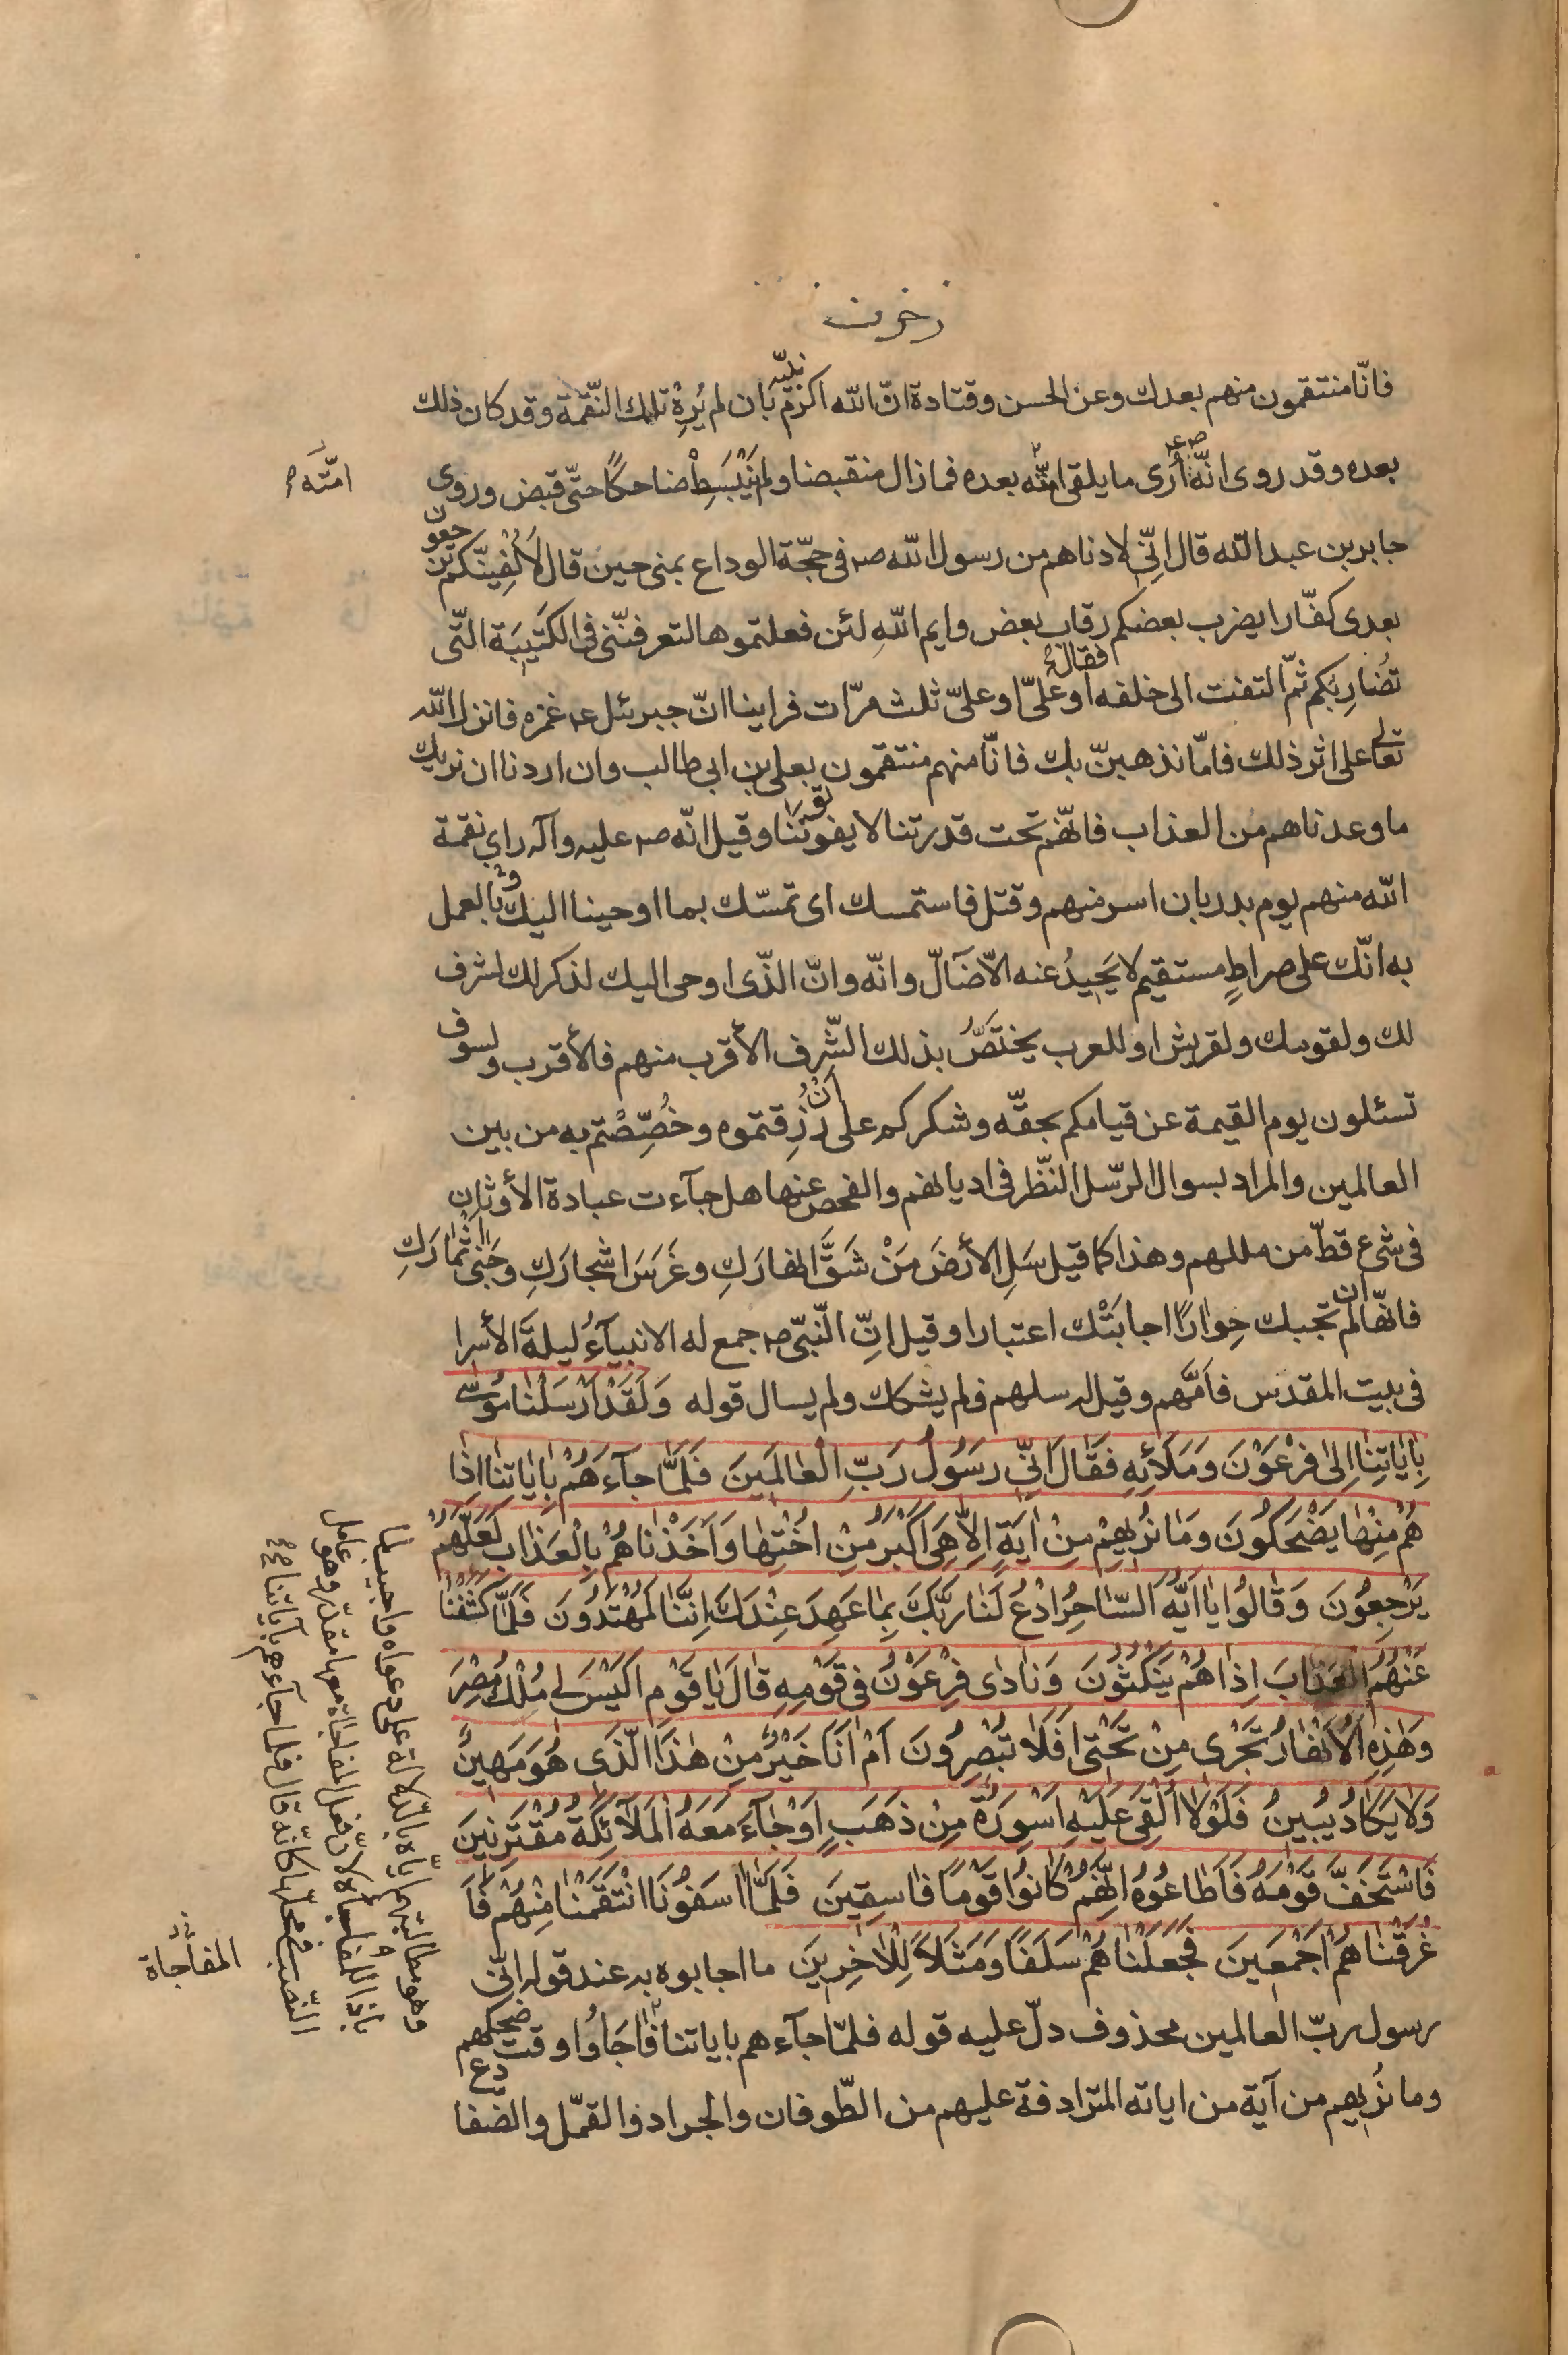 زخرف
فانّا منتقمون منهم بعدك وعن الحسن وقتادة انّ الله اكرم نبيّه بان لم يُرِهْ تلك النّقمة وقد كان ذلك
بعده وقد روى انّه ص ع أُرى ما يلقى امّته بعده فمازال منقبضا ولم يَنْبَسِطْ ضاحكًا حتّى قبض وروى
جابر بن عبد الله قال انّي لادناهم من رسول الله ص في حجّة الوداع بمنى حين قال لَأُلْفِينّكم ترجعون
بعدى كفّارا يضرب بعضكم رقاب بعض وايم اللهِ لئن فعلتموها لتعرفنّنى فى الكَتيبَة التّى
تُضارِبكم ثمّ التفت الى خلفه فقال او علىّ او علىّ ثلث مرّات فراينا انّ جبرئل ع غمزه فانزل الله
تعالى على اثر ذلك فامّا نذهبنّ بك فانّا منهم منتقمون بعلى بن ابى طالب وان اردنا ان نريك
ما وعدناهم من العذاب فانّهم تحت قدرتنا لا يفوتوننا وقيل انّه ص عليه وآله راي نقمة
الله منهم يوم بدر بان اسر منهم وقتل فاستمسك اى تمسّك بما اوحينا اليك و بالعمل
به انّك على صراطٍ مستقيم لا يَحيدُ عنه الّا ضآلّ وانّه وانّ الذّى اوحى اليك لذكر لك لشرف
لك ولقومك ولقريش او للعرب يختصّ بذلك الشّرف الأقرب منهم فالأقرب ولسوف
تسئلون يوم القيمة عن قيامكم بحقّه وشكركم على ان رُزِقتموه وخُصِّصْتم به من بين
العالمين والمراد بسوال الرّسل النّظر فى اديانهم والفحص عنها هل جآءت عبادة الأوثان
فى شىء قطّ من مللهم وهذا كما قيل سَلِ الأرضَ مَنْ شَقَّ انهارَكِ وغَرَسَ اشجارَكِ وجَنىٰ ثمارَكِ
فانّها ان لم تجبك حِوارًا اجابَتْك اعتبارا وقيل انّ النّبىّ ص جمع له الانبيآءُ ليلةَ الأسرا
فى بيت المقدس فاَمَّهم وقيل له سلهم فلم يشكك ولم يسال قوله وَلَقَدْ اَرْسَلْنٰا مُوسىٰ
بِاٰيٰاتِنٰا اِلىٰ فِرْعَوْنَ وَمَلَائِهِ فَقٰالَ اِنّى رَسُولُ رَبِّ الْعٰالَمينَ فَلَمّٰا جآءَهُمْ بِاٰيٰاتِنٰا اِذٰا
هُمْ مِنْهٰا يَضْحَكُونَ وَمٰا نُريهِمْ مِنْ اٰيَةٍ اِلّٰا هِىَ اَكْبَرُ مِنْ اُخْتِهٰا وَاَخَذْنٰاهُمْ بِالْعَذٰابِ لَعَلَّهُمْ
يَرْجِعُونَ وَقٰالُوا يٰا اَيُّهَ السّٰاحِرُ ادْعُ لَنٰا رَبَّكَ بِمٰا عَهِدَ عِنْدَكَ اِنَّنٰا لَمُهْتَدُونَ فَلَمّٰا كَشَفْنٰا
عَنْهُمُ الْعَذٰابَ اِذٰا هُمْ يَنْكُثُونَ وَنٰادىٰ فِرْعَوْنُ فى قَوْمِهِ قٰالَ يٰا قَوْمِ اَلَيْسَ لى مُلْكُ مِصْرَ
وَهٰذِهِ الْاَنْهٰارُ تَجْرى مِنْ تَحْتى اَفَلٰا تُبْصِرُونَ اَمْ اَنَا خَيْرٌ مِنْ هٰذَا الَّذى هُوَ مَهينٌ
وَلٰا يَكٰادُ يُبينُ فَلَوْلٰا اُلْقِىَ عَلَيْهِ اَسْوِرَةٌ مِنْ ذَهَبٍ اَوْ جٰآءَ مَعَهُ الْمَلآئِكَةُ مُقْتَرِنينَ
فَاسْتَخَفَّ قَوْمَهُ فَاَطٰاعُوهُ اِنَّهُمْ كٰانُوا قَوْمًا فٰاسِقينَ فَلَمّٰا اٰسَفُونَا انْتَقَمْنٰا مِنْهُمْ فَاَ
غْرَقْنٰاهُمْ اَجْمَعينَ فَجَعَلْنٰاهُمْ سَلَفًا وَمَثَلاً لِلْاٰخِرينَ ما اجابوه به عند قوله انّى
رسول ربّ العالمين محذوف دلّ عليه قوله فلمّا جآءهم باياتنا فاجَأوُا وقت ضحكهم
وما نُريهم من آية من اياته المترادفة عليهم من الطّوفان والجراد والقمّل والضفادع
امّته
وهو مطالبتهم ايّاه بالدّلالة على دعواه واجيب لما
باذا المفاجأة لانّ فعل المفاجاة معها مقدّر وهو عامل
النّصب فى محلّها كانّه قال فلما جآءهم بآياتنا
المفاجاة